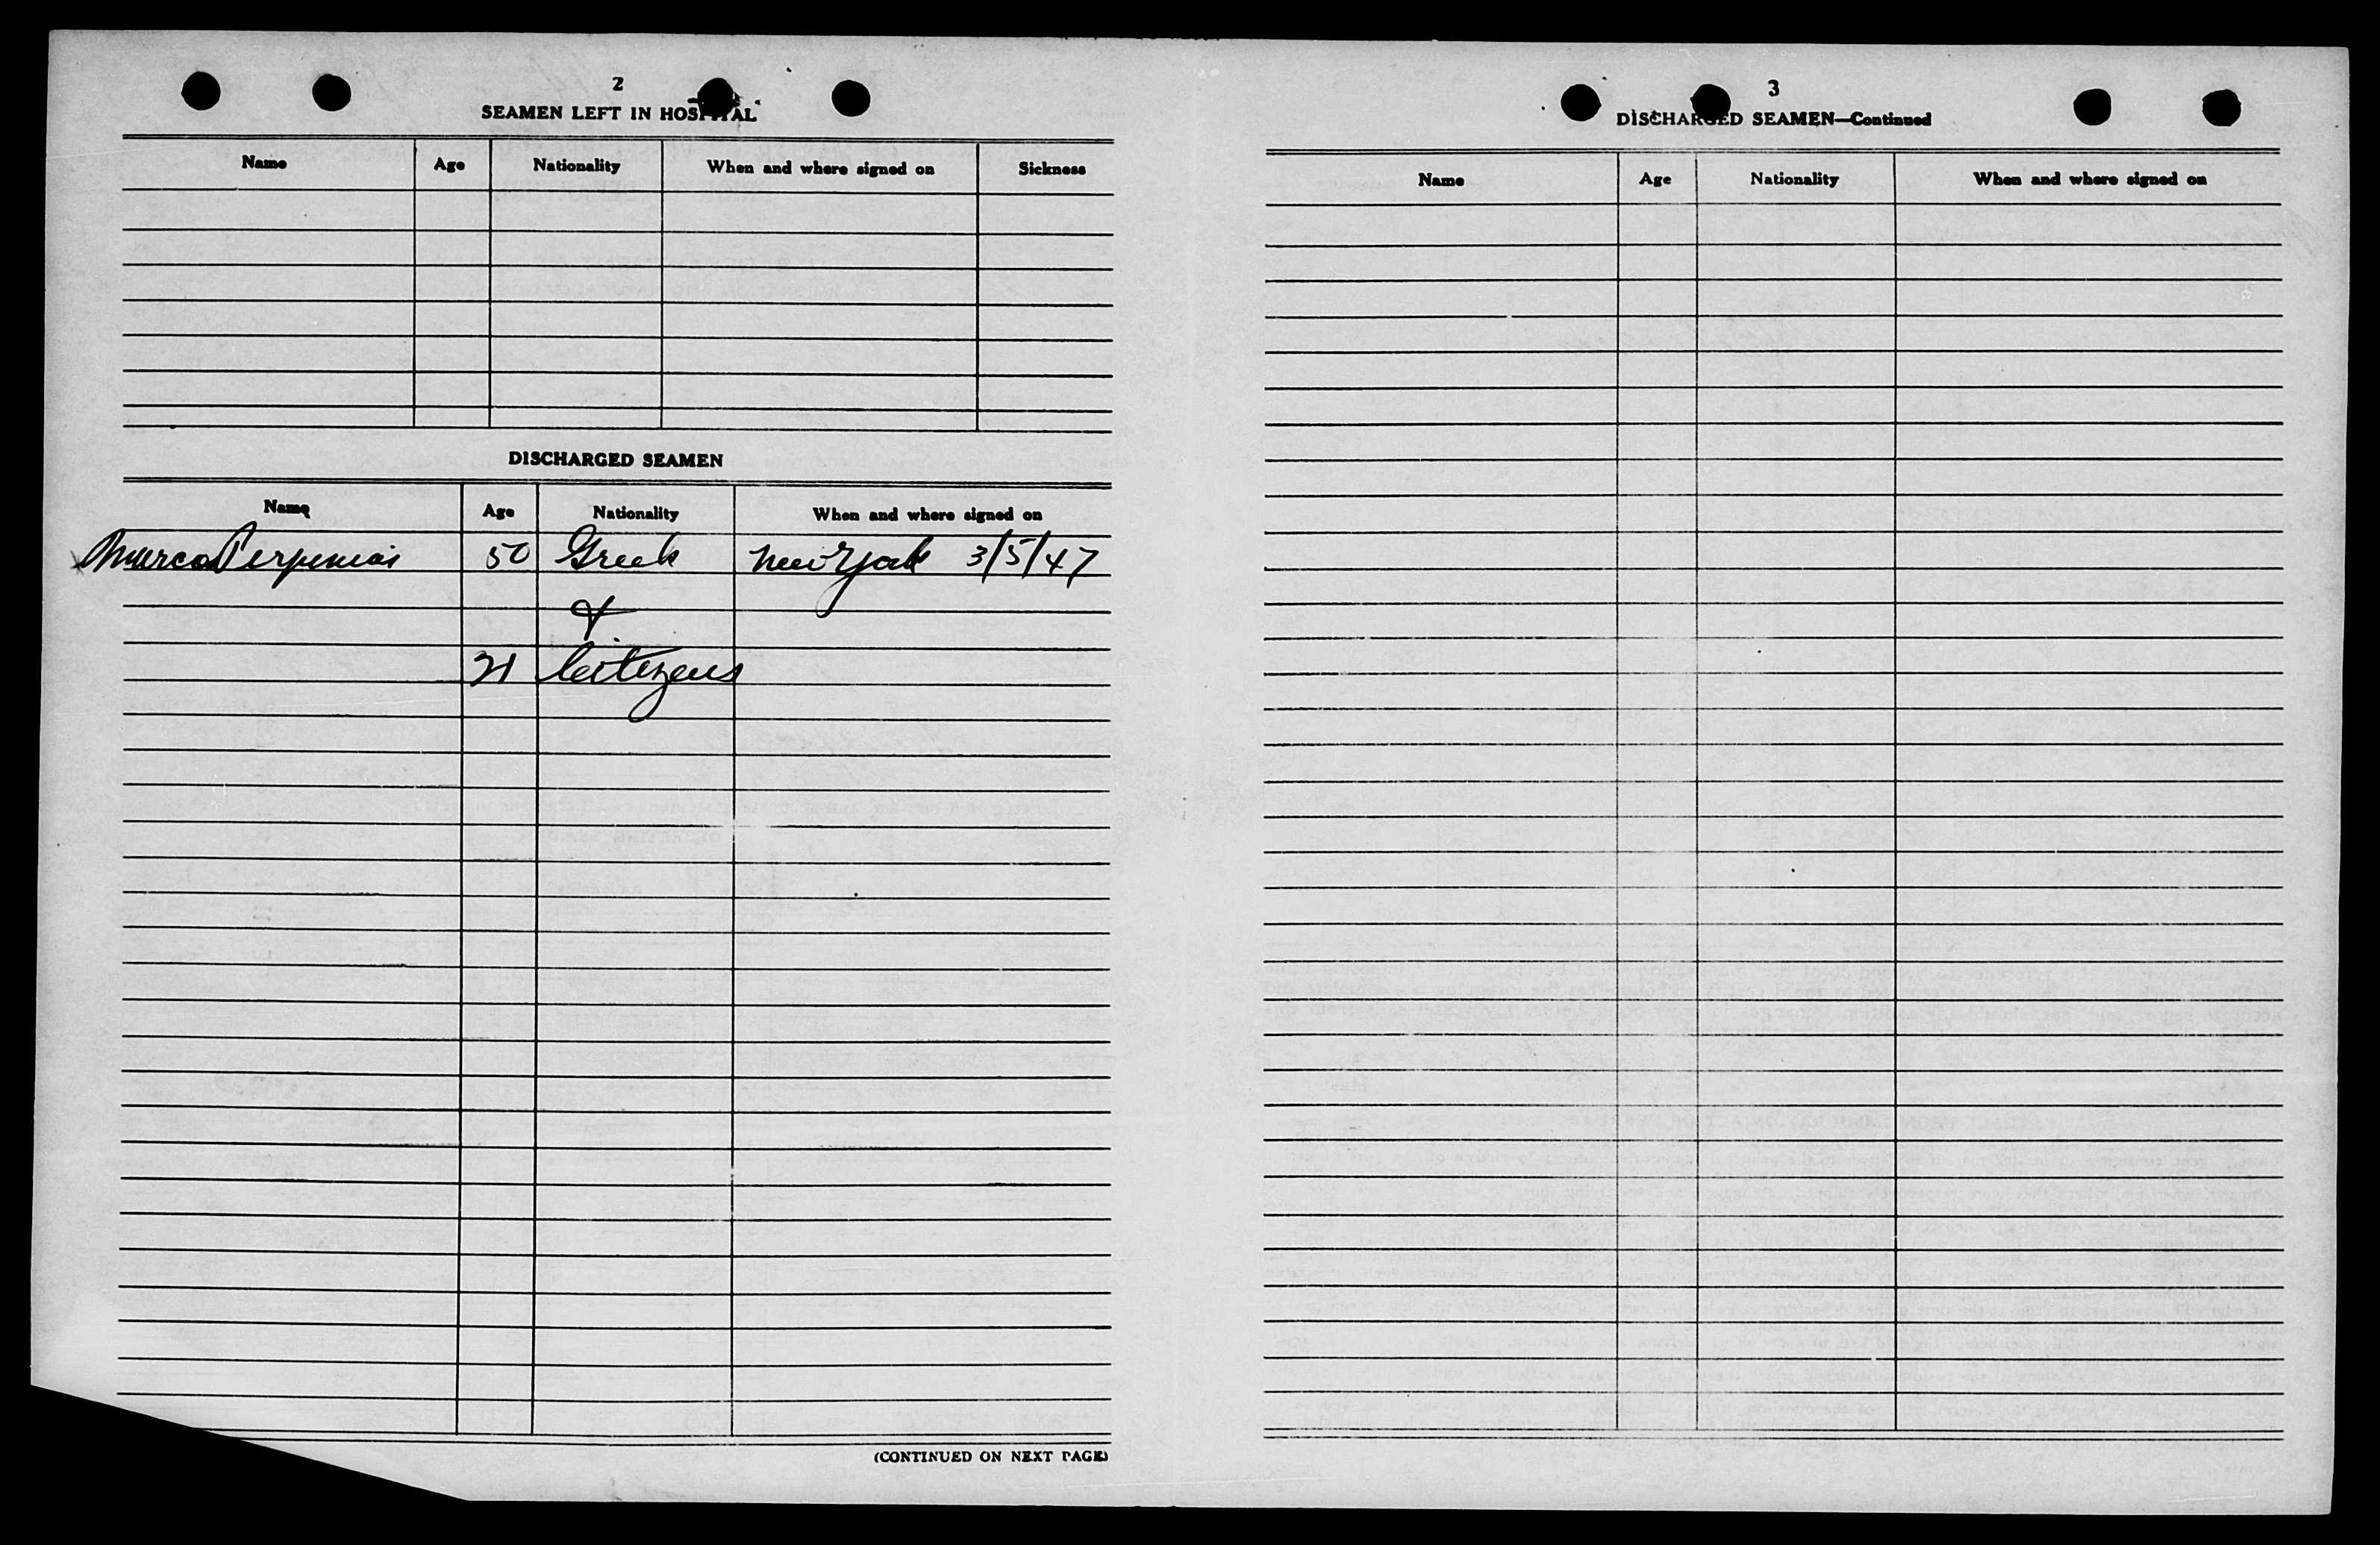 2
SEAMEN LEFT IN HOSPITAL
Name Age Nationality When and where signed on Sickness
DISCHARGED SEAMEN
Name Age Nationality When and where signed on
Marco 50 Greek New York 3/5/47
&
21 Citizens
(CONTINUED ON NEXT PAGE)
3
DISCHARGED SEAMEN—Continued
Name Age Nationality When and where signed on